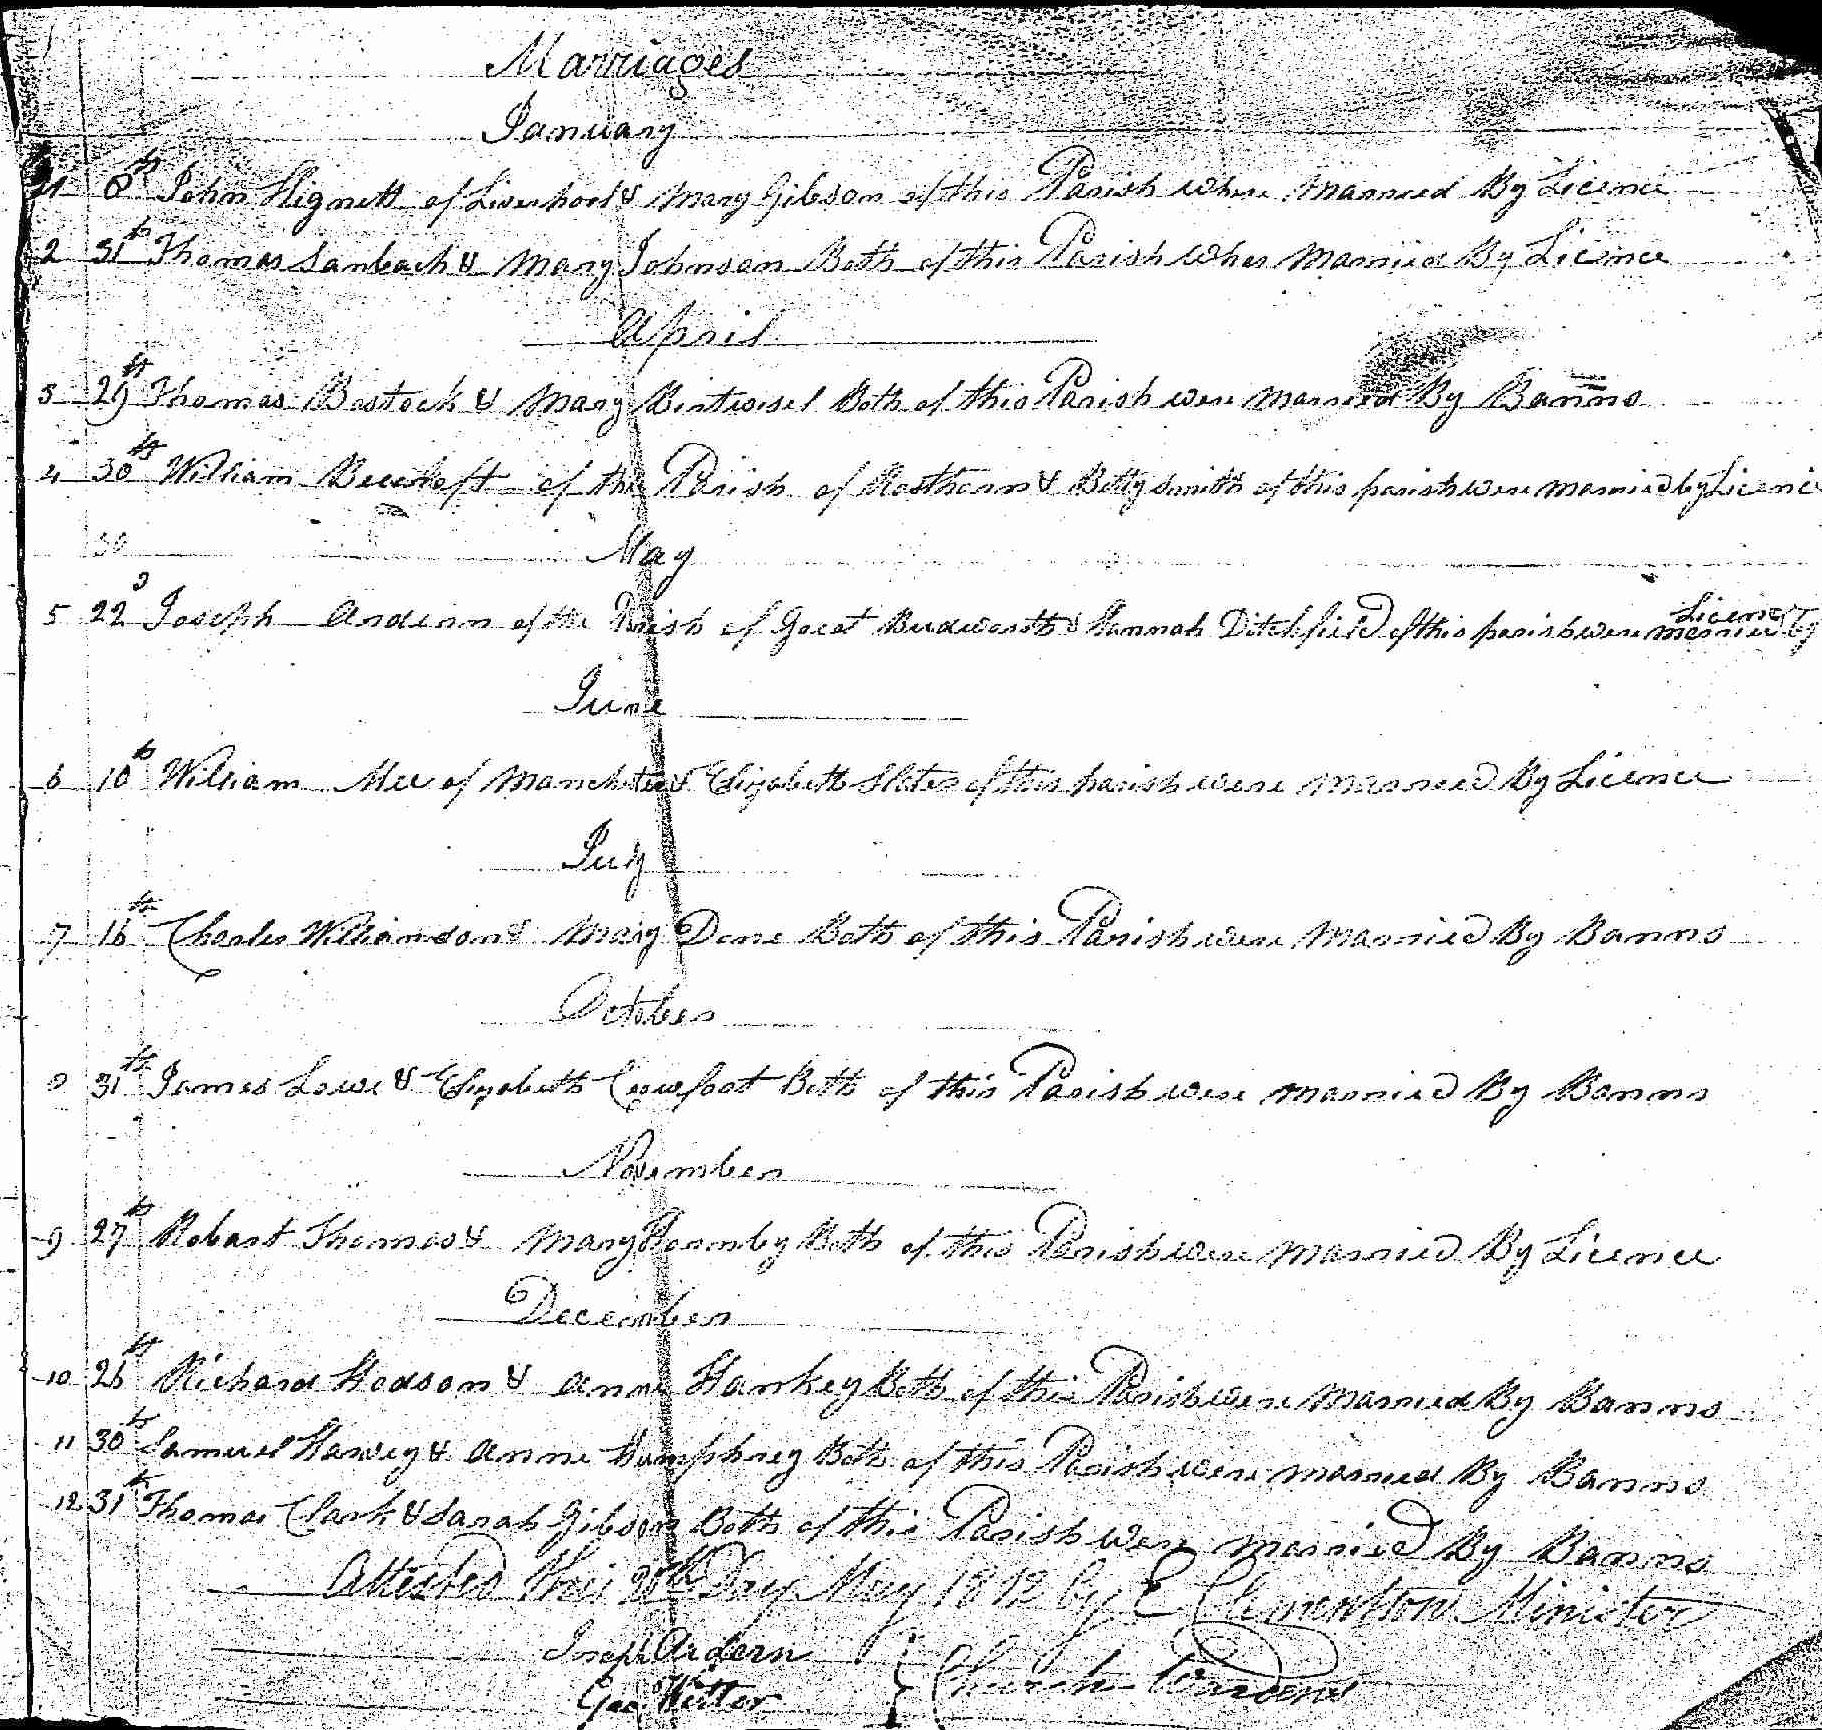 Marriages
January
1 8th John Hignett of Liverpool & Mary Gibson of this Parish where Married By Licence
2 31th Thomas Sanbach & Mary Johnson Both of this Parish Whar Married By Licence
April
3 29th Thomas Bostock & Mary Birtwisel Both of this Parish were Married By Banns
4 30th William of the Parish of Rosthorn & Betty Smith of this parish were married by Licence
30 May
5 22d Joseph Ardern of the Parish of Great Budworth & Hannah Ditchfield of this parish were married by Licence
June
6 10th William Mee of Manchster & Elizabeth Slater of this parish were Married By Licence
July
7 16th Charles Williamson & Mary Done Both of this Parish were Married By Banns
October
8 31th James Lowe & Elizabeth Crowfoot Both of this Parish were Married By Banns
November
9 27th Robart Thomas & Mary Formby Both of this Parish were Married By Licence
December
10 26th Richard Hodson & Anne Hankey Both of this Parish were Married By Banns
11 30th Samuel Harvey & Anne Humphrey Both of this Parish were Married By Banns
12 31th Thomas Clark & Sarah Gibson Both of this Parish Were Married By Banns
Attested this Day May 1812 by E Clementson Minister
Joseph Ardern } Church Wardens
Geo Witter